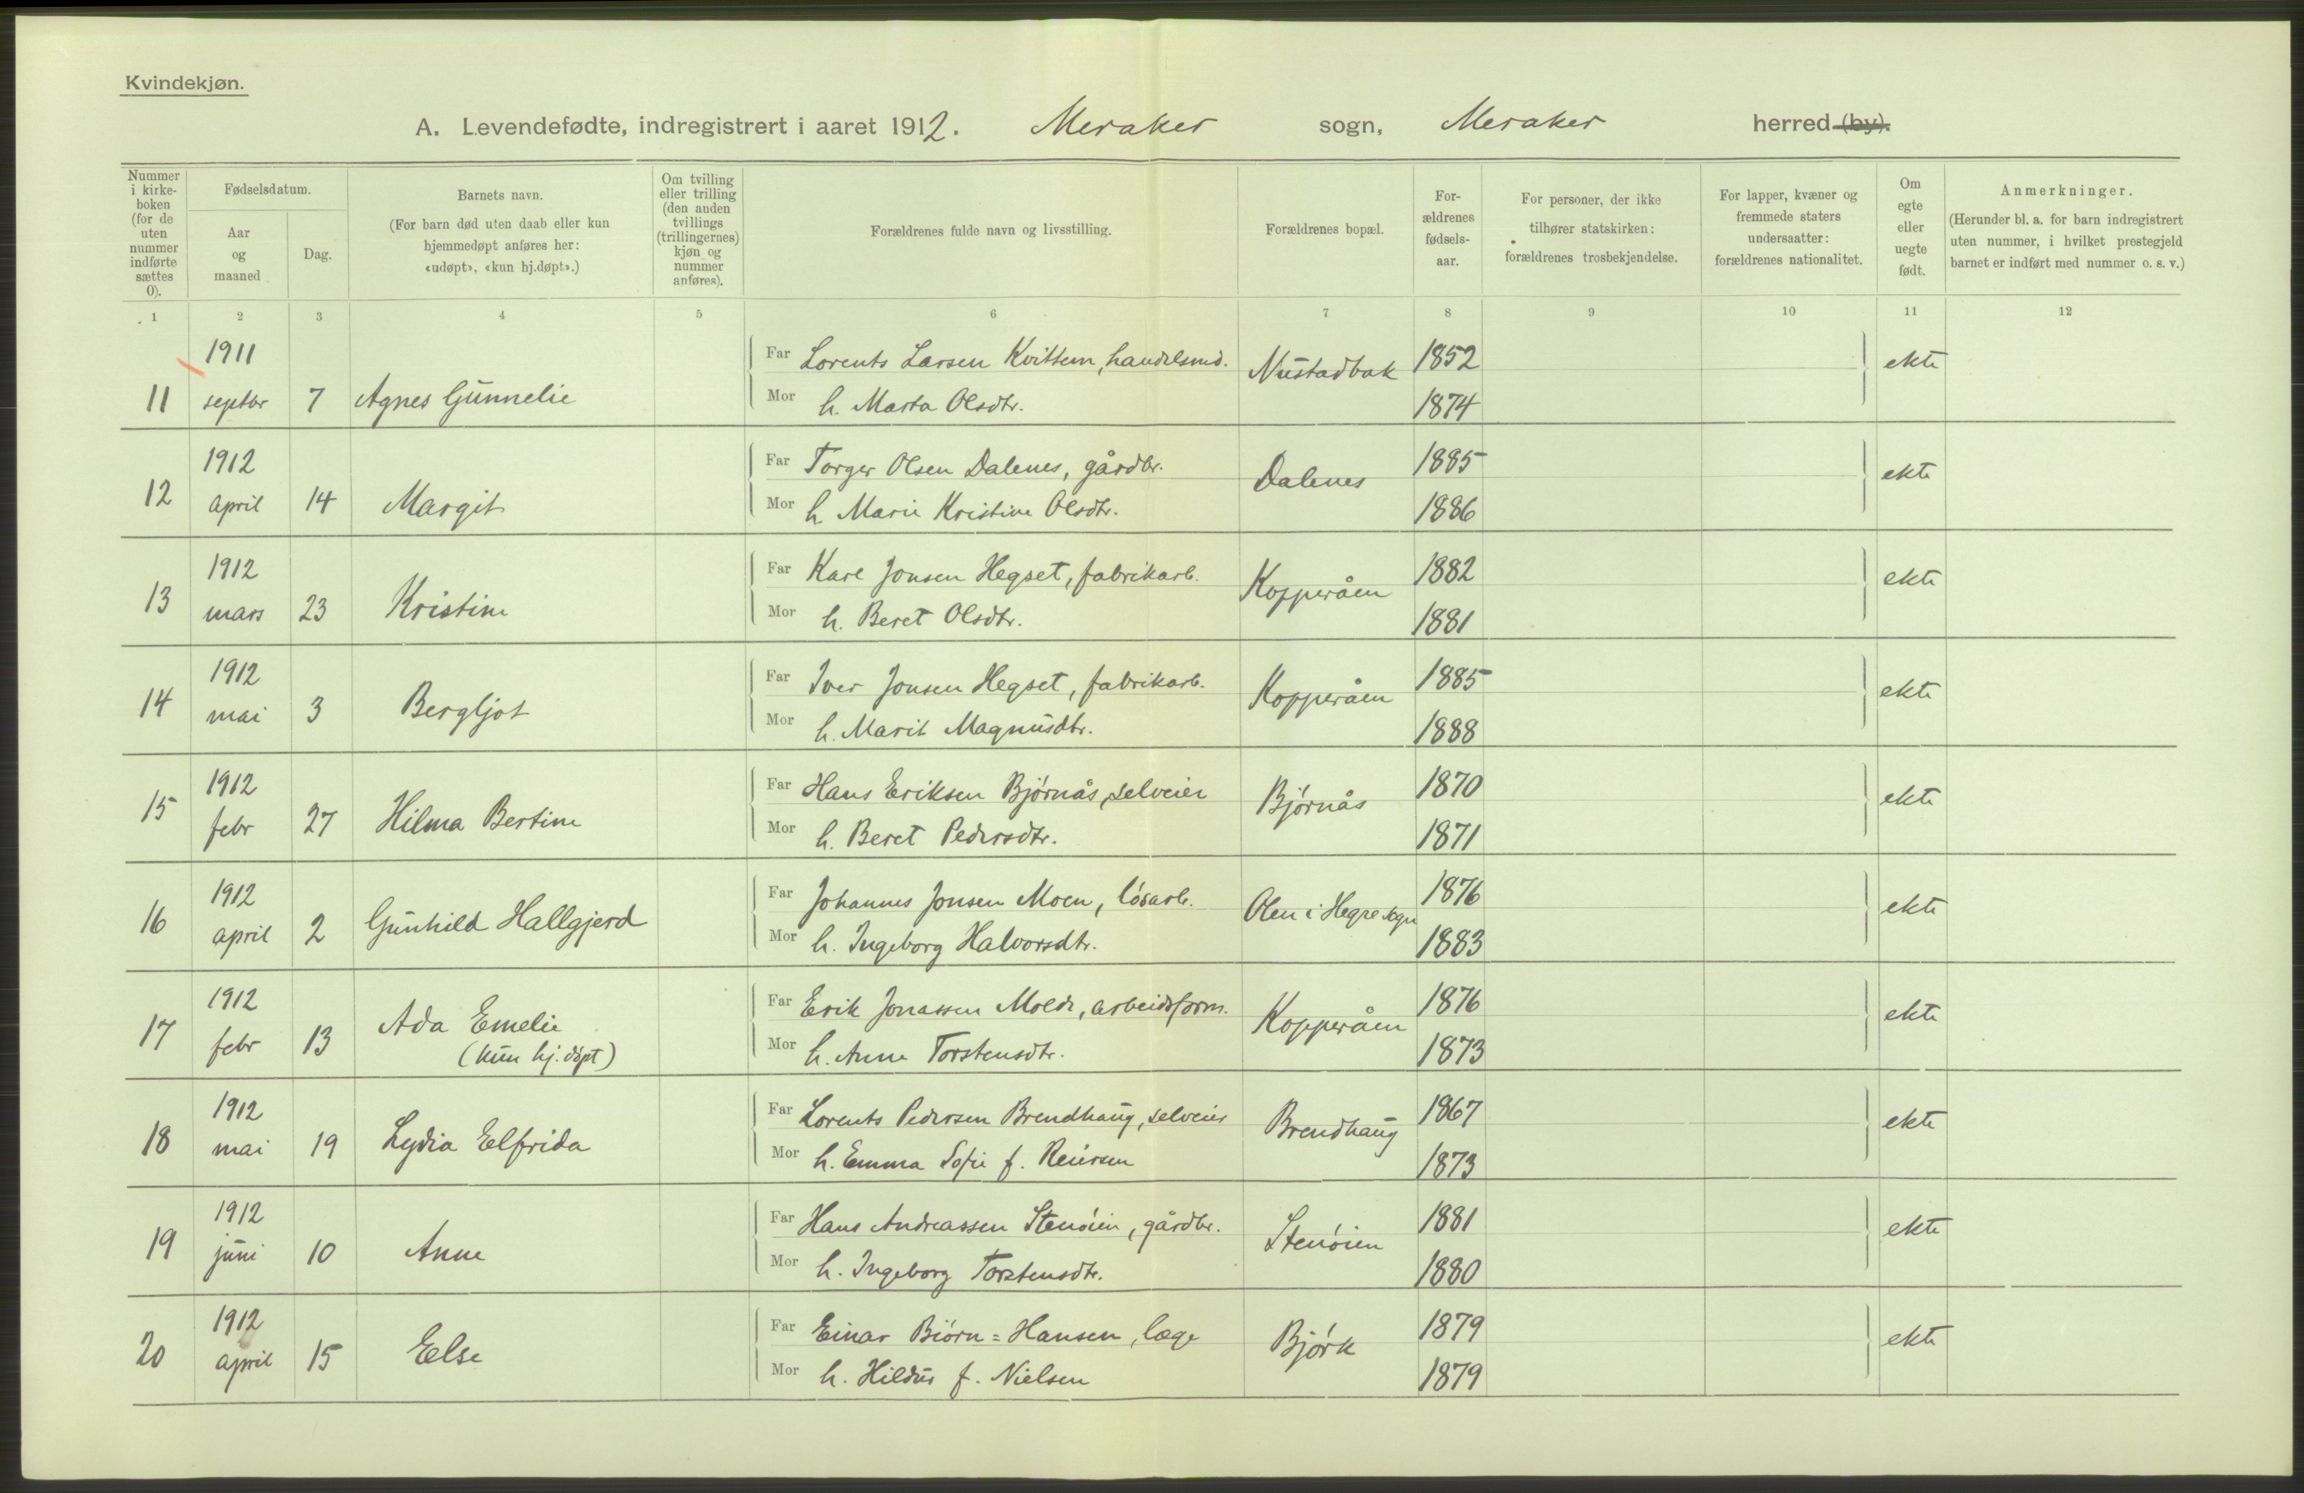 Kvindekjøn.
A. Levendefødte, indregistrert i aaret 1912. Meraker sogn, Meraker herred (by).
Nummer i kirke-boken (for de uten nummer indførte sættes 0).
Fødselsdatum.
Aar og maaned
Dag.
Barnets navn.
(For barn død uten daab eller kun hjemmedøpt anføres her: «udøpt», «kun hj.døpt».)
Om tvilling eller trilling (den anden tvillings (trillingernes) kjøn og nummer anføres).
Forældrenes fulde navn og livsstilling.
Forældrenes bopæl.
For-ældrenes fødsels-aar.
For personer, der ikke tilhører statskirken: forældrenes trosbekjendelse.
For lapper, kvæner og fremmede staters undersaatter: forældrenes nationalitet.
Om egte eller uegte født.
Anmerkninger.
(Herunder bl. a. for barn indregistrert uten nummer, i hvilket prestegjeld barnet er indført med nummer o. s. v.)
1 2 3 4 5 6 7 8 9 10 11 12
1911 Far Lorents Larsen Kvittem, handelsmd. Nustadbak 1852 ekte
11 septbr 7 Agnes Gunnelie Mor h. Marta Olsdtr. 1874
1912 Far Torger Olsen Dalenes, gårdbr. Dalenes 1885 ekte
12 april 14 Margit Mor h Marie Kristine Olsdtr. 1886
1912 Far Kare Jonsen Hegset, fabrikarb. Kopperåen 1882 ekte
13 mars 23 Kristine Mor h. Beret Olsdtr. 1881
1912 Far Iver Jonsen Hegset, fabrikarb. Kopperåen 1885 ekte
14 mai 3 Bergljot Mor h. Marit Magnusdtr. 1888
1912 Far Hans Eriksen Bjørnås, selveier Bjørnås 1870 ekte
15 febr 27 Hilma Bertine Mor h. Beret Pedersdtr. 1871
1912 Far Johannes Jonsen Moen, løsarb. Olen i Hegre sogn 1876 ekte
16 april 2 Gunhild Hallgjerd Mor h. Ingeborg Halvorsdtr. 1883
1912 Far Erik Jonassen Molde, arbeidsform. Kopperåen 1876 ekte
17 febr 13 Ada Emelie Mor h. Anne Torstensdtr. 1873
(kun hj. døpt)
1912 Far Lorents Pedersen Brendhaug, selveier Brendhaug 1867 ekte
18 mai 19 Lydia Elfrida Mor h. Emma Sofie f. Reiersen 1873
1912 Far Hans Andreassen Stenøien, gårdbr. Stenøien 1881 ekte
19 juni 10 Anne Mor h. Ingeborg Torstensdtr. 1880
1912 Far Einar Biørn=Hansen, læge Bjørk 1879 ekte
20 april 15 Else Mor h. Hildur f. Nielsen 1879